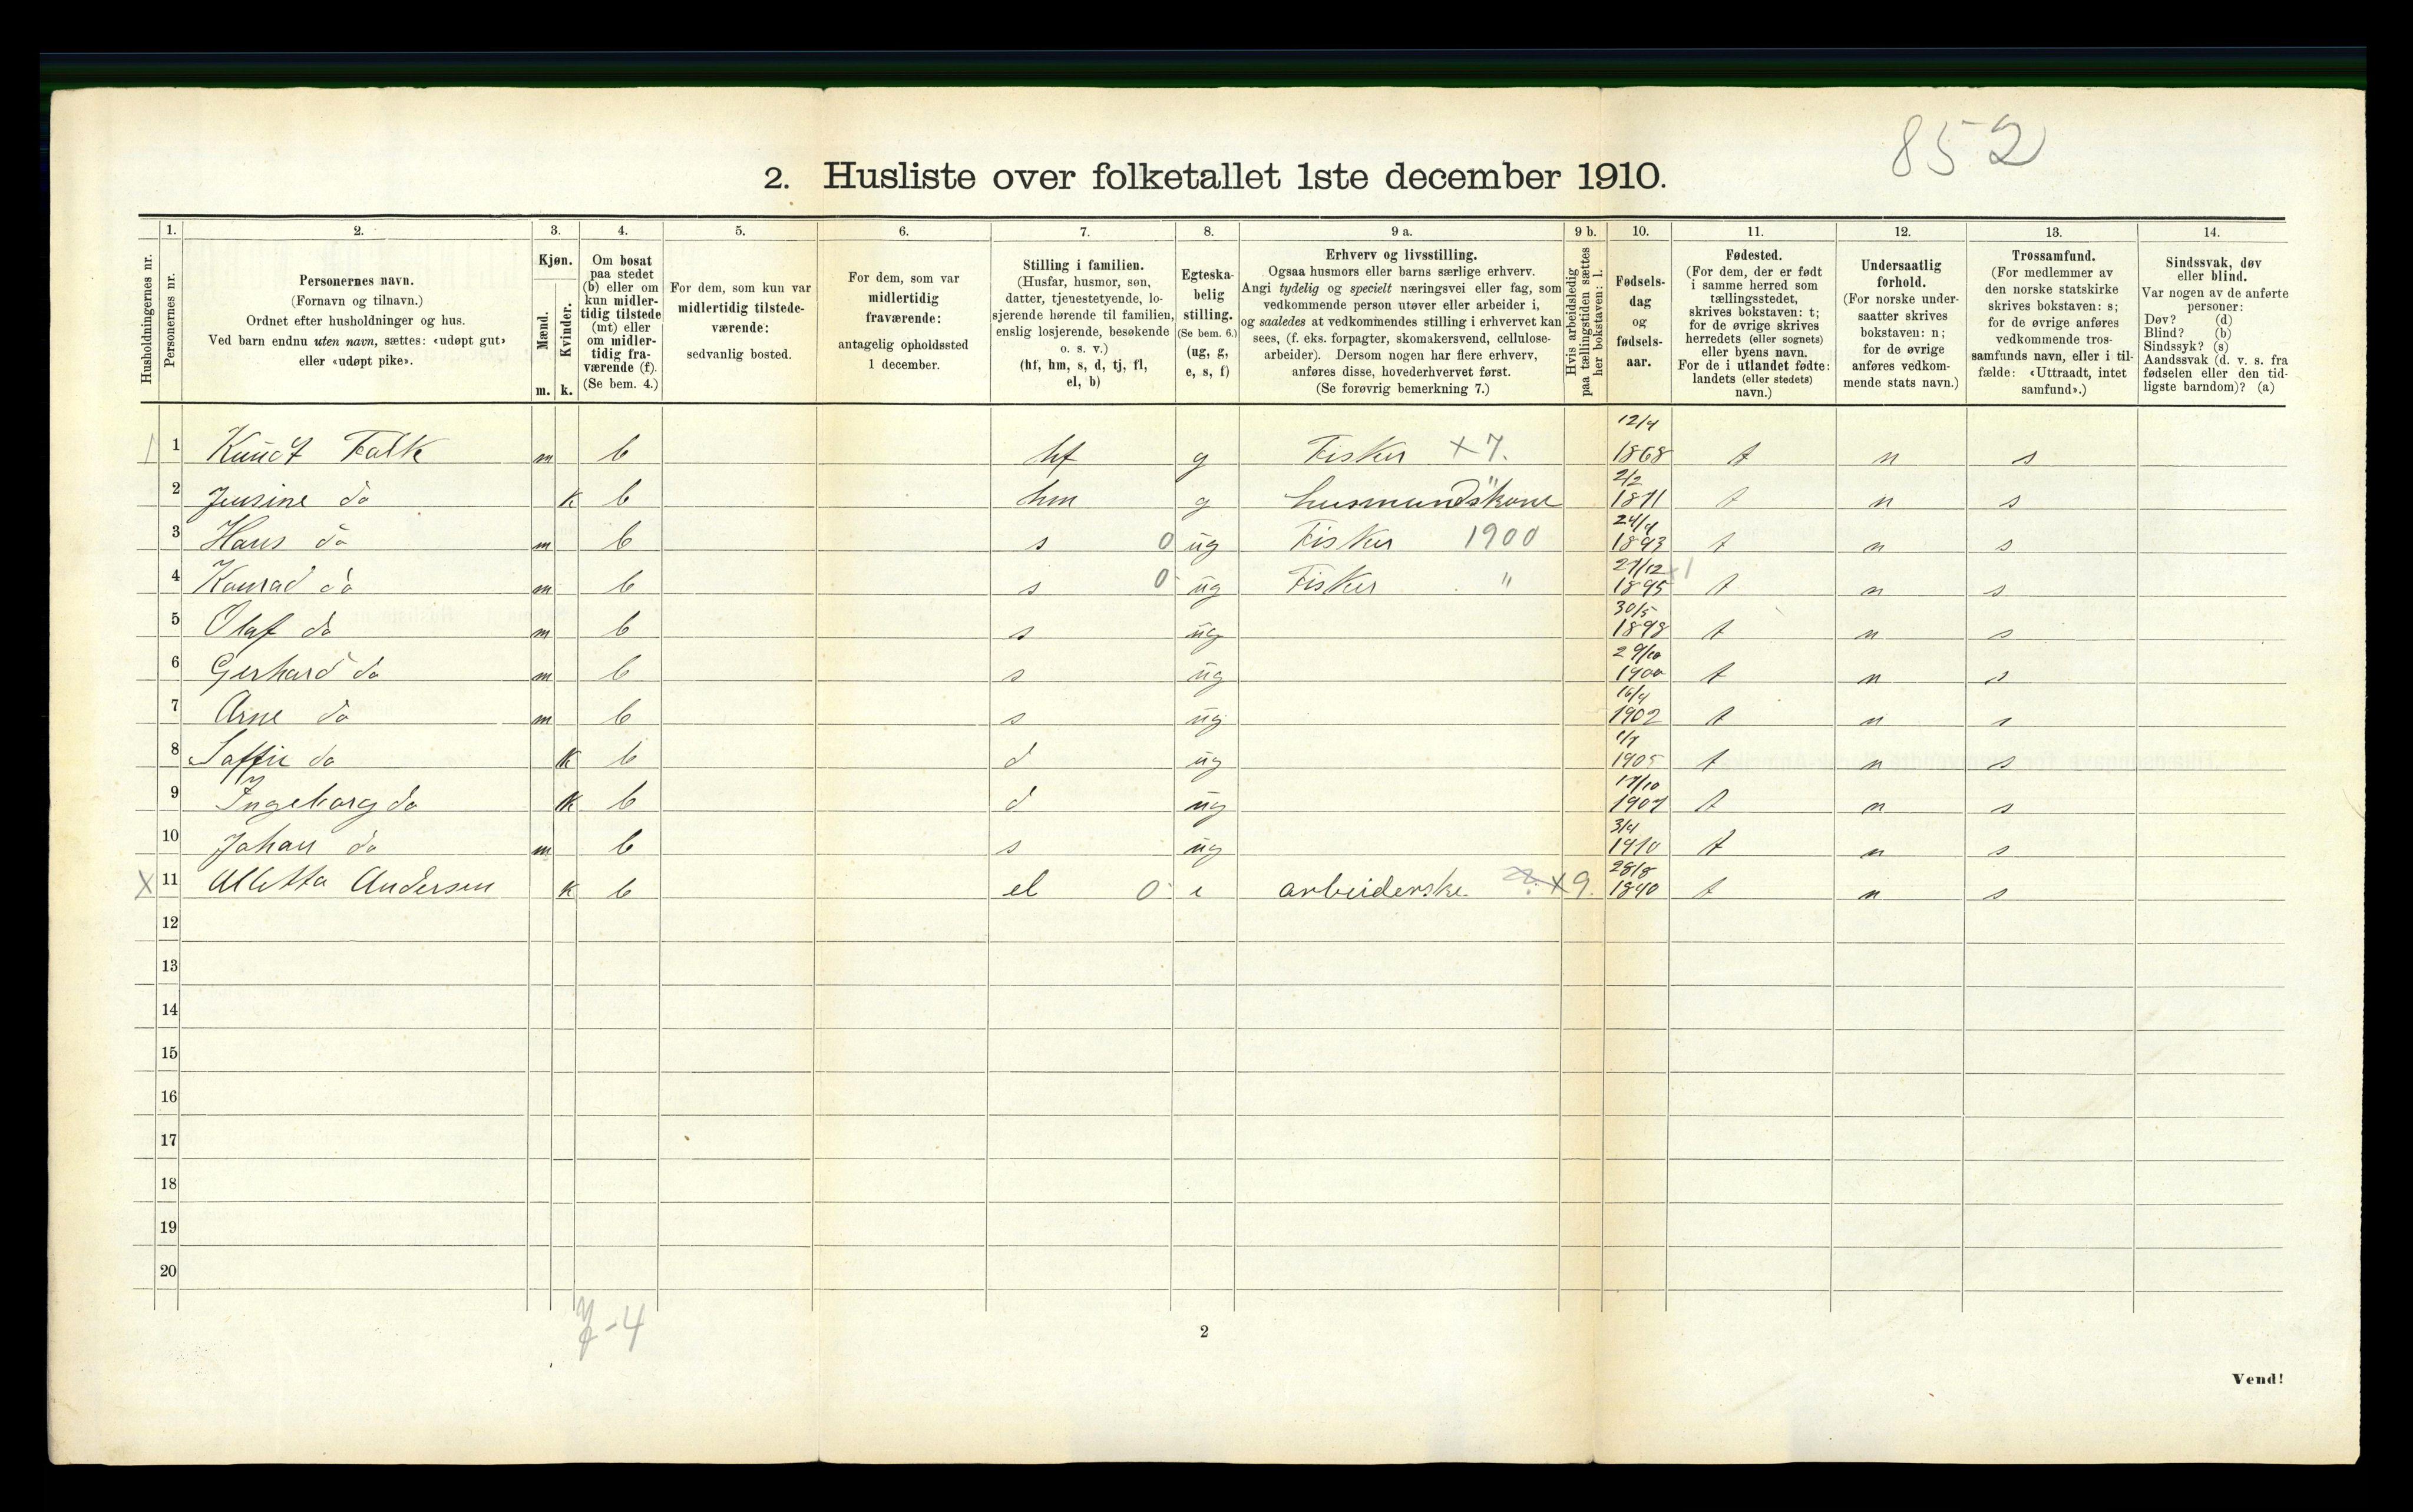 852
2. Husliste over folketallet 1ste december 1910.
Husholdningernes nr.
1.
Personernes nr.
2.
Personernes navn.
(Fornavn og tilnavn.)
Ordnet efter husholdninger og hus.
Ved barn endnu uten navn, sættes: «udøpt gut»
eller «udøpt pike».
3.
Kjøn.
Mænd.
Kvinder.
m. k.
4.
Om bosat
paa stedet
(b) eller om
kun midler-
tidig tilstede
(mt) eller
om midler-
tidig fra-
værende (f).
(Se bem. 4.)
5.
For dem, som kun var
midlertidig tilstede-
værende:
sedvanlig bosted.
6.
For dem, som var
midlertidig
fraværende:
antagelig opholdssted
1 december.
7.
Stilling i familien.
(Husfar, husmor, søn,
datter, tjenestetyende, lo-
sjerende hørende til familien,
enslig losjerende, besøkende
o. s. v.)
(hf, hm, s, d, tj, fl,
el, b)
8.
Egteska-
belig
stilling.
(Se bem. 6.)
(ug, g,
e, s, f)
9 a.
Erhverv og livsstilling.
Ogsaa husmors eller barns særlige erhverv.
Angi tydelig og specielt næringsvei eller fag, som
vedkommende person utøver eller arbeider i,
og saaledes at vedkommendes stilling i erhvervet kan
sees, (f. eks. forpagter, skomakersvend, cellulose-
arbeider). Dersom nogen har flere erhverv,
anføres disse, hovederhvervet først.
(Se forøvrig bemerkning 7.)
9 b.
Hvis arbeidsledig
paa tællingstiden sættes
her bokstaven: l.
10.
Fødsels-
dag
og
fødsels-
aar.
11.
Fødested.
(For dem, der er født
i samme herred som
tællingsstedet,
skrives bokstaven: t;
for de øvrige skrives
herredets (eller sognets)
eller byens navn.
For de i utlandet fødte:
landets (eller stedets)
navn.)
12.
Undersaatlig
forhold.
(For norske under-
saatter skrives
bokstaven: n;
for de øvrige
anføres vedkom-
mende stats navn.)
13.
Trossamfund.
(For medlemmer av
den norske statskirke
skrives bokstaven: s;
for de øvrige anføres
vedkommende tros-
samfunds navn, eller i til-
fælde: «Uttraadt, intet
samfund».)
14.
Sindssvak, døv
eller blind.
Var nogen av de anførte
personer:
Døv? (d)
Blind? (b)
Sindssyk? (s)
Aandssvak (d. v. s. fra
fødselen eller den tid-
ligste barndom)? (a)
1 1 Knudt Falk m b hf g Fisker x 7. 12/4 1868 t n s
2 Jensine do k b hm g husmundskone " 2/2 1871 t n s
3 Hans do m b s 0 ug Fisker 1900 24/4 1893 t n s
4 Konrad do m b s 0 ug Fisker " 27/12 1895 t n s
5 Olaf do m b s ug 30/5 1898 t n s
6 Gerhard do m b s ug 29/10 1900 t n s
7 Arne do m b s ug 16/4 1902 t n s
8 Saffie do k b d ug 1905 t n s
9 Ingeborg do k b d ug 17/10 1907 t n s
10 Johan do m b s ug 3/4 1910 t n s
X 11 Alletta Andersen k b el 0 e arbeiderske x 9. 28/8 1840 t n s
12
13
14
15
16
17
18
19
20
7-4
2
Vend!